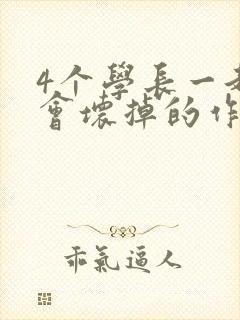 4个學長一
會壞掉的作
乖氣逼人